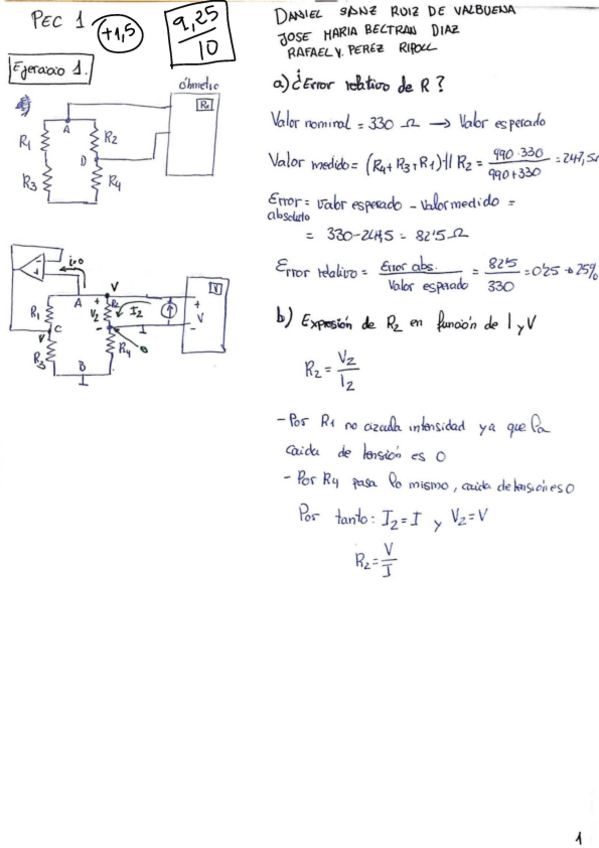 PEC 1
+1,5
9,25
10
DANIEL SANZ RUIZ DE VALBUENA
JOSE MARIA BELTRAN DIAZ
RAFAEL V. PEREZ RIPOLL
Ejercicio 1.
óhmetro
A
R1
R2
D
R3
R4
a) ¿Error relativo de R?
Valor nominal = 330 Ω → Valor esperado
Valor medido = (R4 + R3 + R1) || R2 = 990·330 / 990+330 = 247,5Ω
Error absoluto = valor esperado - Valor medido =
= 330-247,5 = 82'5 Ω
Error relativo = Error abs. / Valor esperado = 82'5 / 330 = 0'25 → 25%
i=0
A
V
R1
V2
R2
I2
I
V
V
C
R3
R4
0
B
b) Expresión de R2 en función de I y V
R2 = V2 / I2
- Por R1 no circula intensidad ya que la
caida de tensión es 0
- Por R4 pasa lo mismo, caida de tensión es 0
Por tanto: I2 = I y V2 = V
R2 = V / I
1